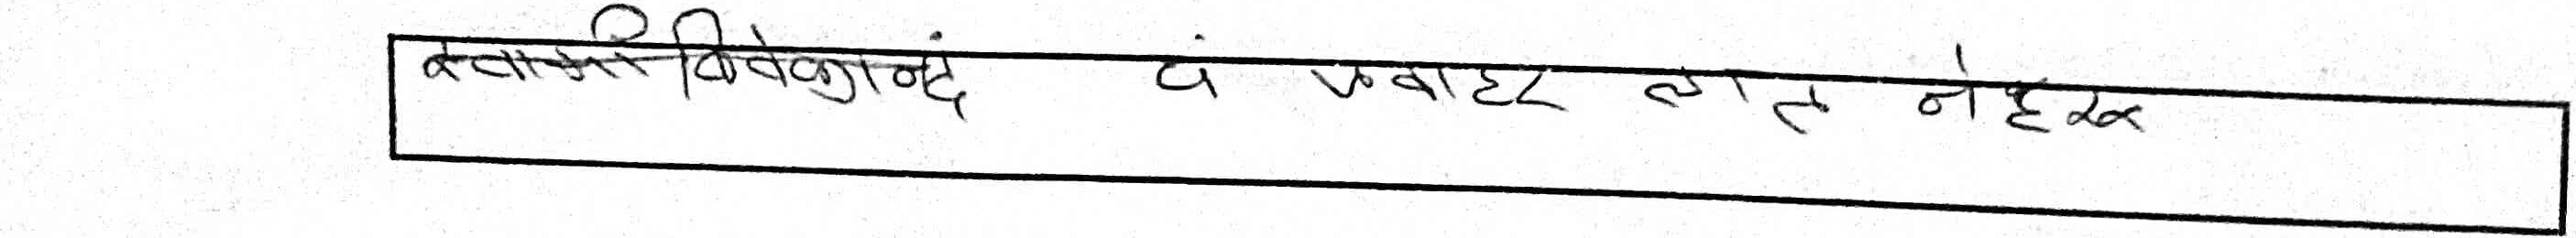 स्वामी विवेकानंद पं जवाहर लाल नेहरू